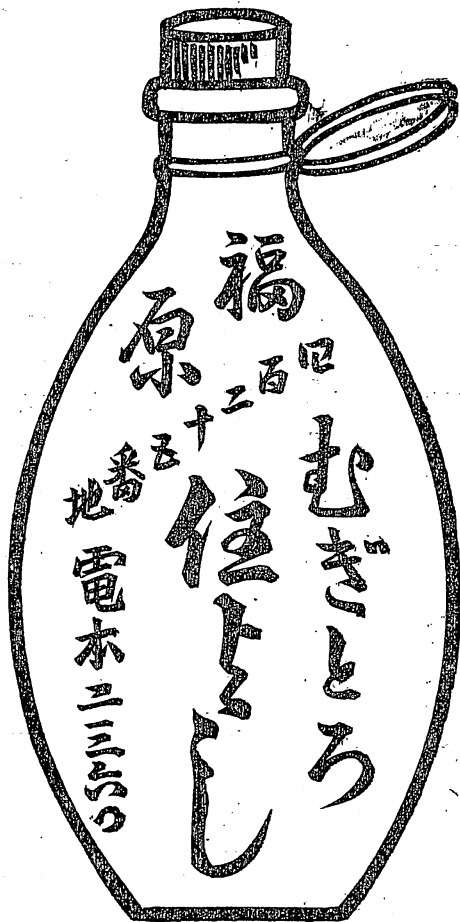 福原
四百二十五番地
むぎとろ
住よし
電本二三六〇